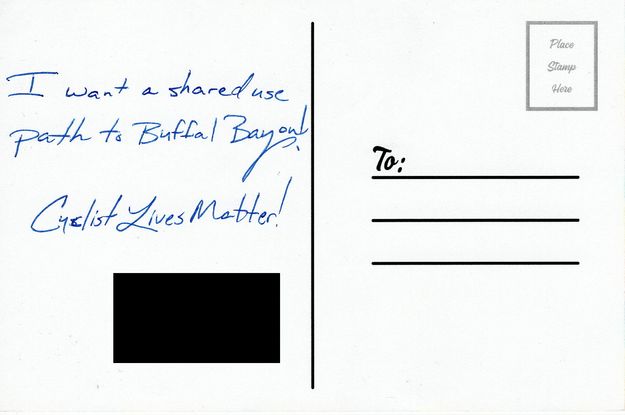 I want a shared use
path to Buffal Bayou!
Cyclist Lives Matter!
Place
Stamp
Here
To: